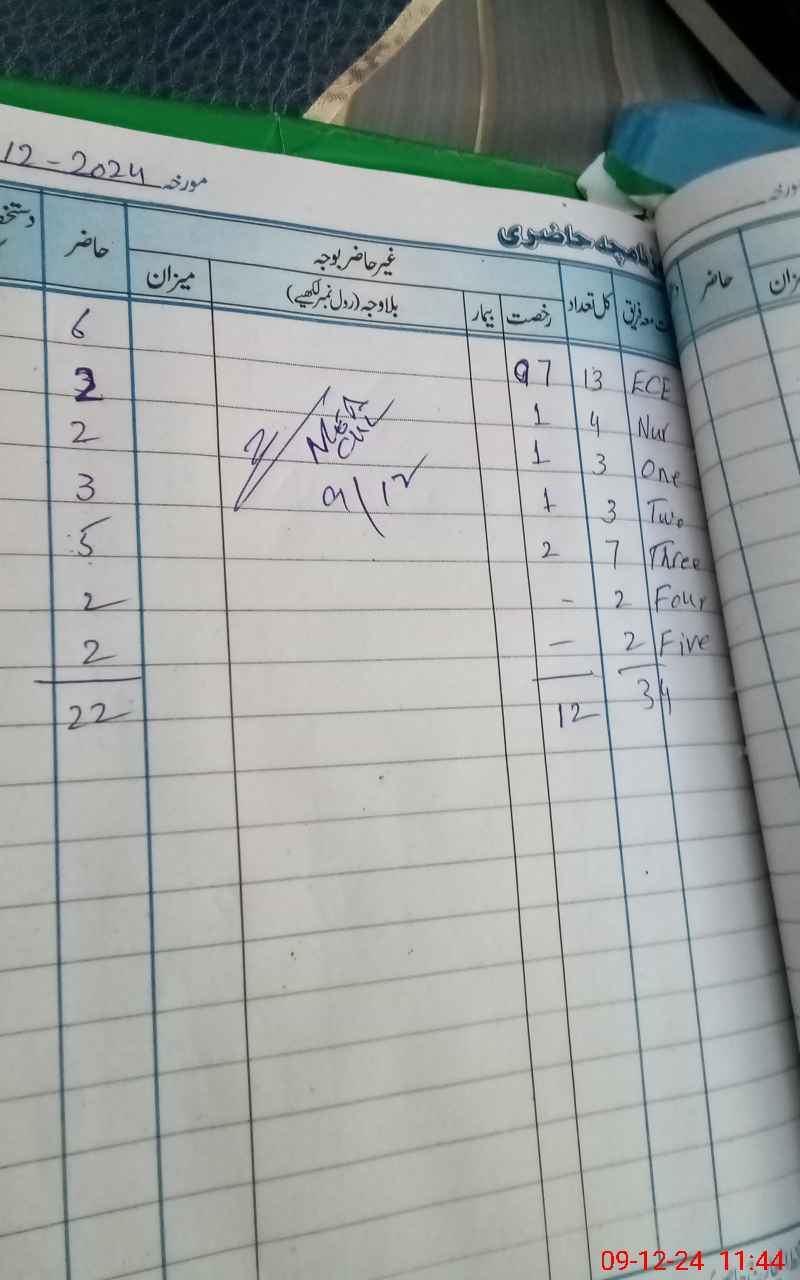 مورخہ 12-2024
روزنامچہ حاضری
معہ فریق کل تعداد غیر حاضر بوجہ حاضر
رخصت بیمار بلاوجہ (رول نمبر لکھیے) میزان
ECE 13 7 6
Nur 4 1 3
One 3 1 2
Two 3 1 3
Three 7 2 5
Four 2 - 2
Five 2 - 2
34 12 22
9/12
مورخہ
حاضر
09-12-24 11:44